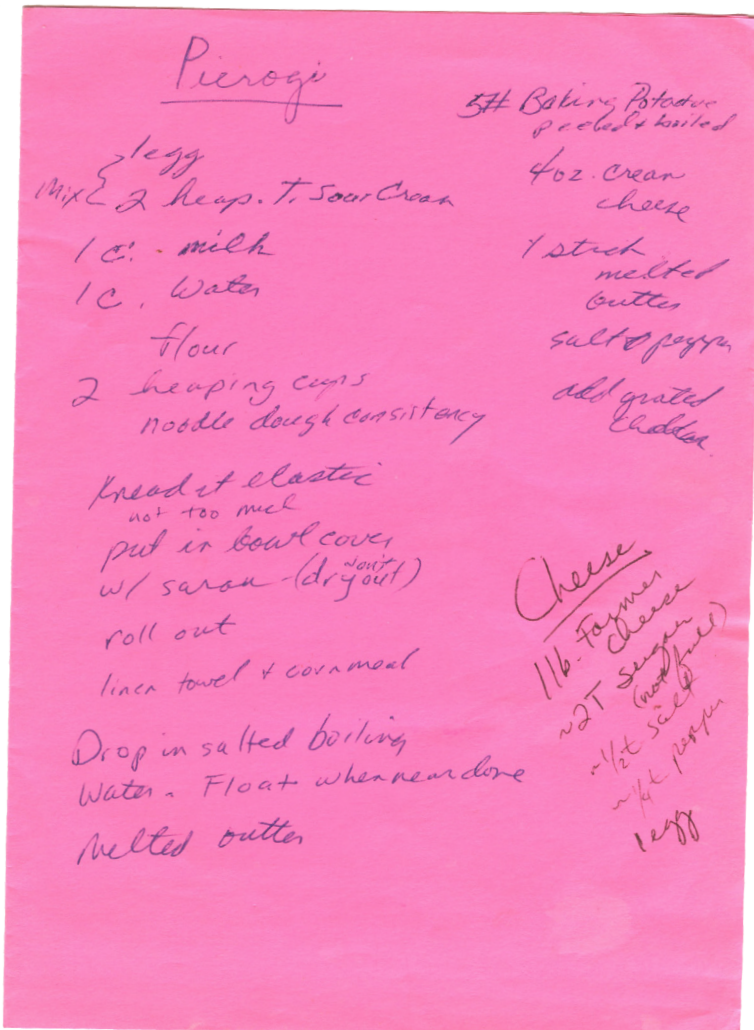 Pierogi
1 egg
Mix 2 heap. T. Sour Cream
1 c. milk
1 c. Water
flour
2 heaping cups
noodle dough consistency
Knead it elastic
not too much
put in bowl cover
w/ saran (don't dry out)
roll out
linen towel + cornmeal
Drop in salted boiling
Water. Float when near done
Melted butter
5# Baking Potatoe
peeled + boiled
4 oz. cream
cheese
1 stick
melted
butter
salt & pepper
add grated
cheddar.
Cheese
1 lb. Farmer
Cheese
~2T sugar
(not full)
~1/2t salt
~1/4t pepper
1 egg